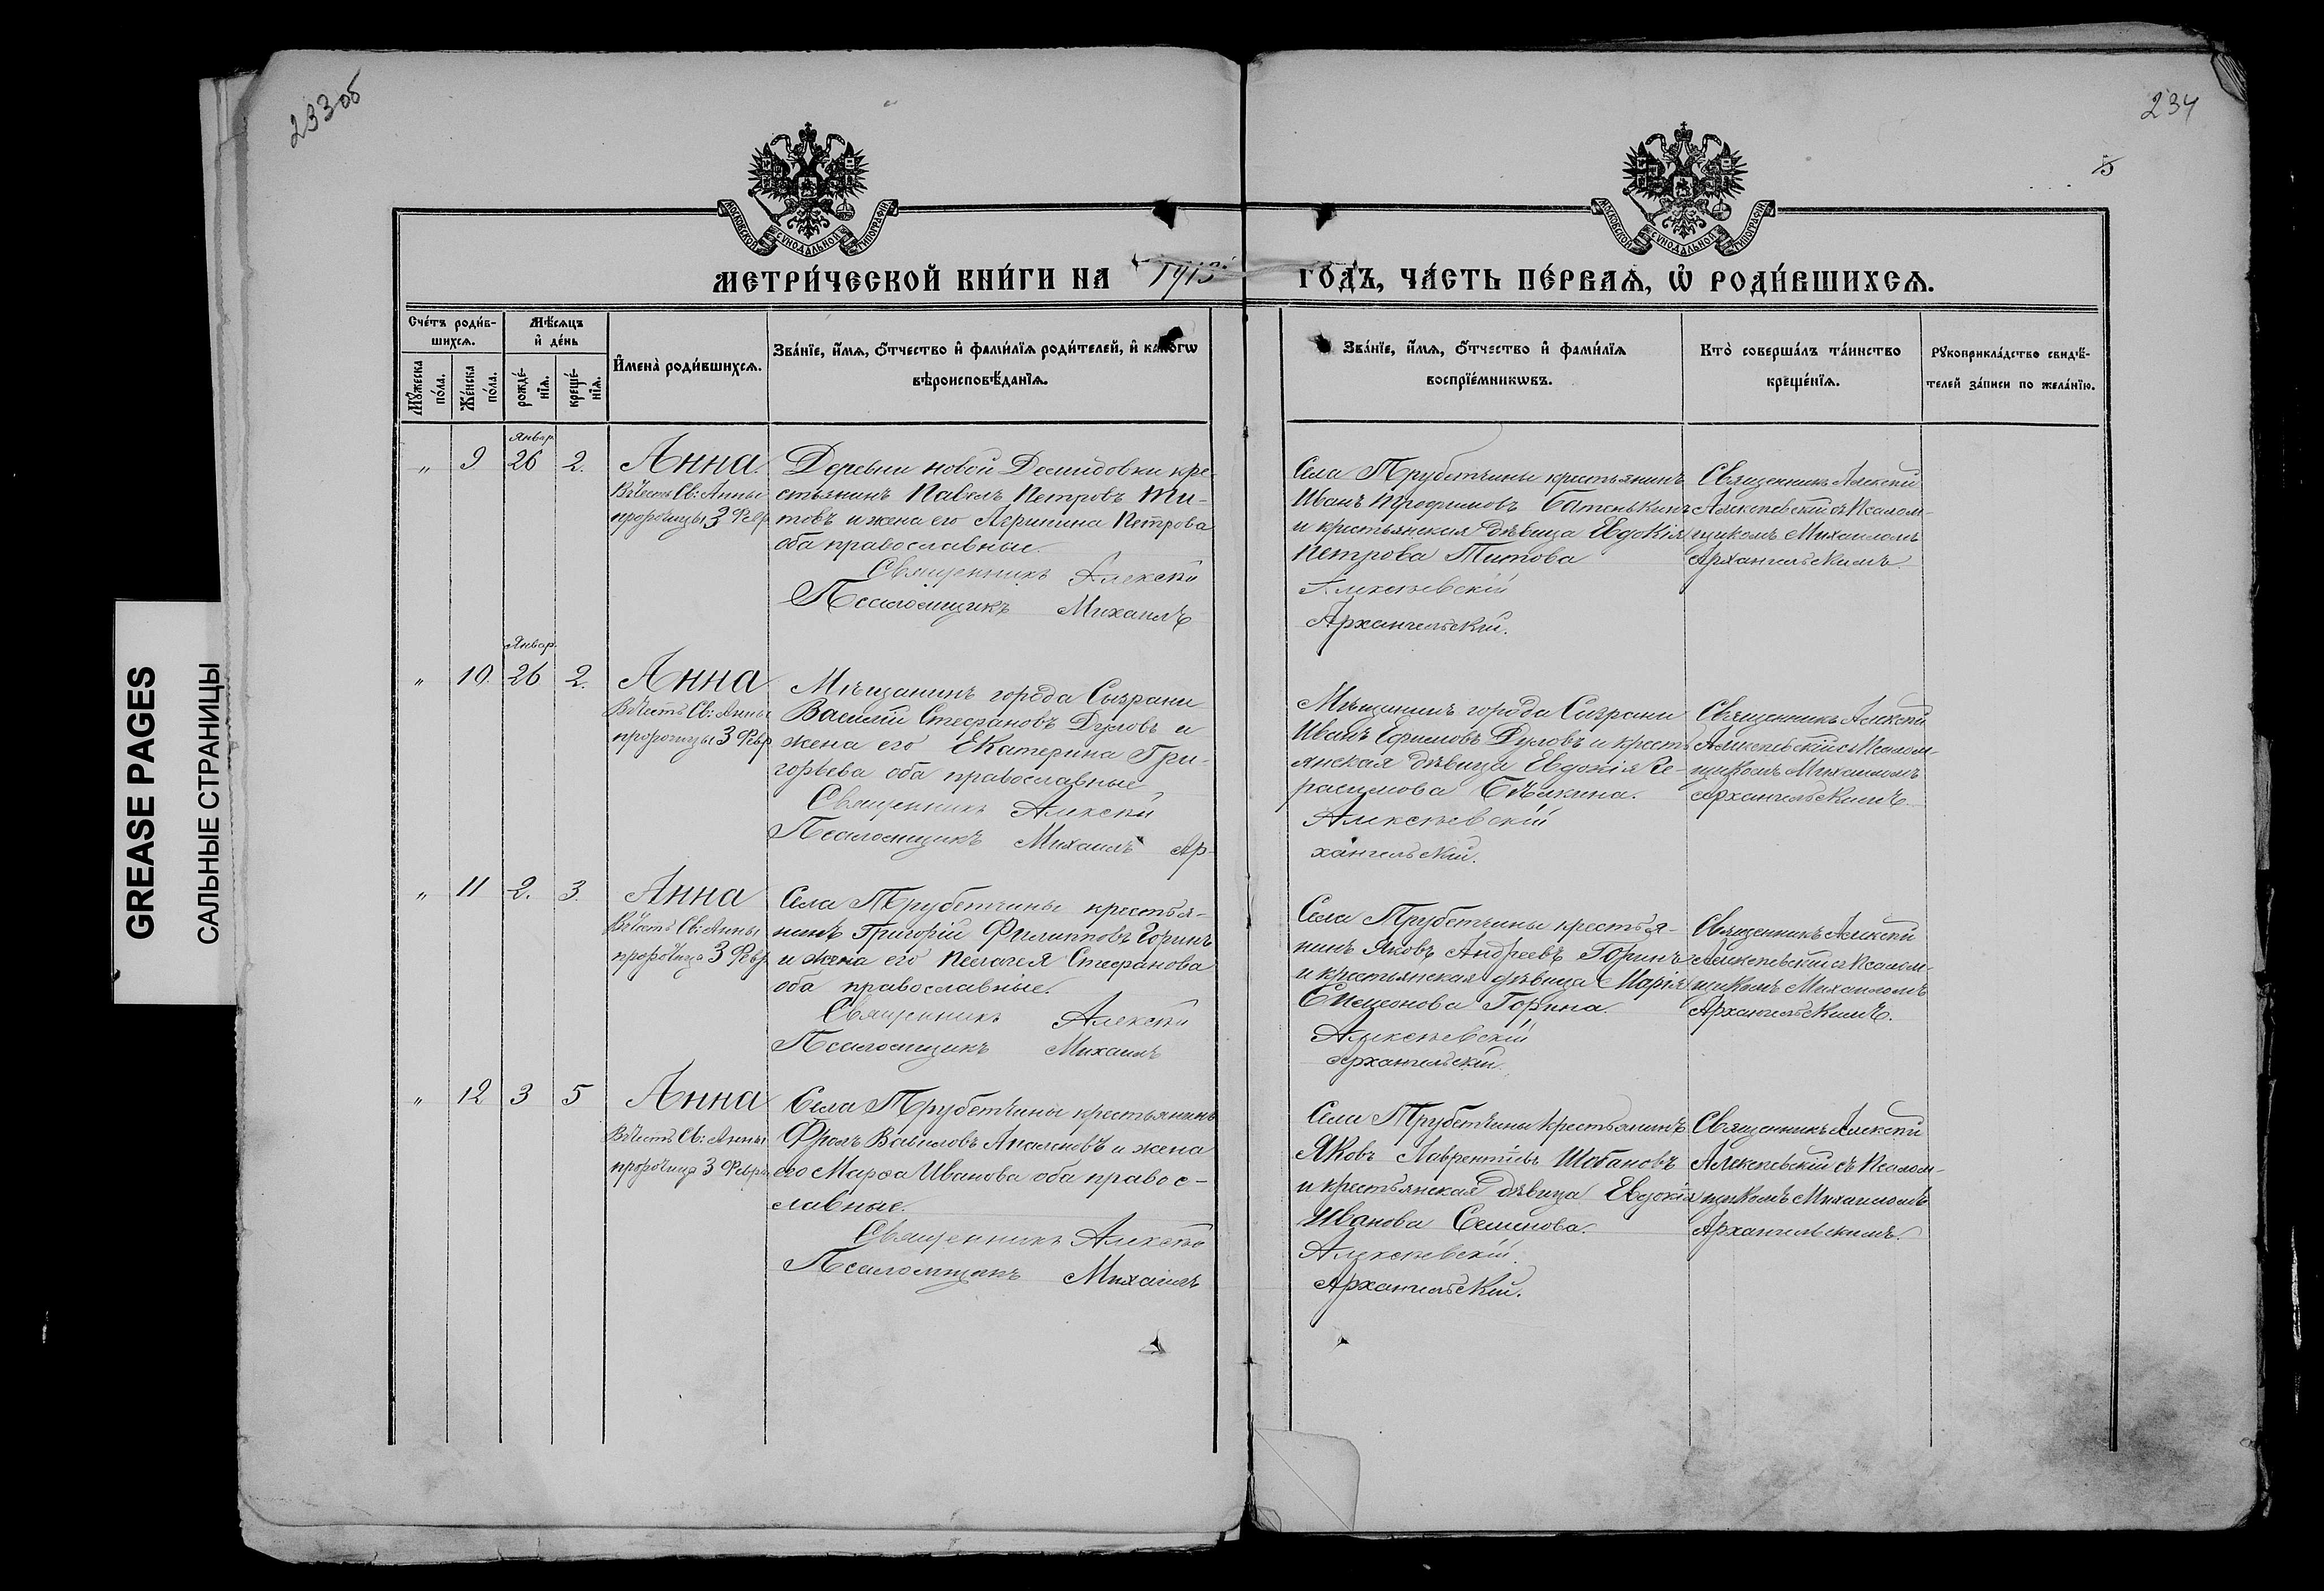 233об
234
5
МОСКОВСКОЙ СѴНОДАЛЬНОЙ ТИПОГРАФІИ
МОСКОВСКОЙ СѴНОДАЛЬНОЙ ТИПОГРАФІИ
МЕТРИ́ЧЕСКОЙ КНИ́ГИ НА 1913 ГО́ДЪ, ЧА́СТЬ ПЕ́РВАѦ, Ѡ҆ РОДИ́ВШИХСѦ.
Сче́тъ роди́в-
шихсѧ.
Мѣ́сѧцъ
и҆ де́нь
Мꙋ́жеска
по́ла.
Же́нска
по́ла.
рожде́-
нїѧ.
креще́-
нїѧ.
И҆мена̀ роди́вшихсѧ.
Зва́нїе, и҆́мѧ, ѻ҆́тчество и҆ фами́лїѧ роди́телей, и҆ како́гѡ
вѣроисповѣ́данїѧ.
Зва́нїе, и҆́мѧ, ѻ҆́тчество и҆ фами́лїѧ
воспрїе́мникѡвъ.
Кто̀ соверша́лъ та́инство
креще́нїѧ.
Рꙋкоприкла́дство свидѣ́-
телей за́писи по жела́нїю.
Январ.
„ 9 26 2. Анна.
Въ честь Св: Анны
пророчицы 3 Февр.
Деревни новой Демидовки кре-
стьянинъ Павелъ Петровъ Ти-
товъ и жена его Агрипина Петрова
оба православные.
Священникъ Алексѣй
Псаломщикъ Михаилъ
Села Трубетчины крестьянинъ
Иванъ Трофимовъ Батенькинъ
и крестьянская дѣвица Евдокія
Петрова Титова
Алексѣевскій
Архангельскій.
Священникъ Алексѣй
Алексѣевскій съ Псалом-
щикомъ Михаиломъ
Архангельскимъ.
Январ.
„ 10. 26 2. Анна
Въ честь Св: Анны
пророчицы 3 Февр.
Мѣщанинъ города Сызрани
Василій Стефановъ Дуловъ и
жена его Екатерина Гри-
горьева оба православные
Священникъ Алексѣй
Псаломщикъ Михаилъ Ар-
Мѣщанинъ города Сызрани
Иванъ Ефимовъ Дуловъ и кресть
янская дѣвица Евдокія Ге-
расимова
Алексѣевскій
хангельскій.
Священникъ Алексѣй
Алексѣевскій съ Псалом-
щикомъ Михаиломъ
Архангельскимъ.
„ 11 2. 3. Анна
Въ честь Св: Анны
пророчица 3 Февр.
Села Трубетчины крестья-
нинъ Григорій Филипповъ Горинъ
и жена его Пелагея Стефанова
оба православные.
Священникъ Алексѣй
Псаломщикъ Михаилъ
Села Трубетчины крестья-
нинъ Яковъ Андреевъ Горинъ
и крестьянская дѣвица Марія
Симеонова Горина.
Алексѣевскій
Архангельскій.
Священникъ Алексѣй
Алексѣевскій съ Псалом-
щикомъ Михаиломъ
Архангельскимъ.
„ 12 3 5 Анна
Въ честь Св: Анны
пророчица 3 Февр.
Села Трубетчины крестьянинъ
Фролъ Вавиловъ и жена
его Марѳа Иванова оба правос-
лавные.
Священникъ Алексѣй
Псаломщикъ Михаилъ
Села Трубетчины крестьянинъ
Яковъ Лаврентіевъ Шабановъ
и крестьянская дѣвица Евдокія
Иванова Семенова.
Алексѣевскій.
Архангельскій.
Священникъ Алексѣй
Алексѣевскій съ Псалом-
щикомъ Михаиломъ
Архангельскимъ.
GREASE PAGES
САЛЬНЫЕ СТРАНИЦЫ